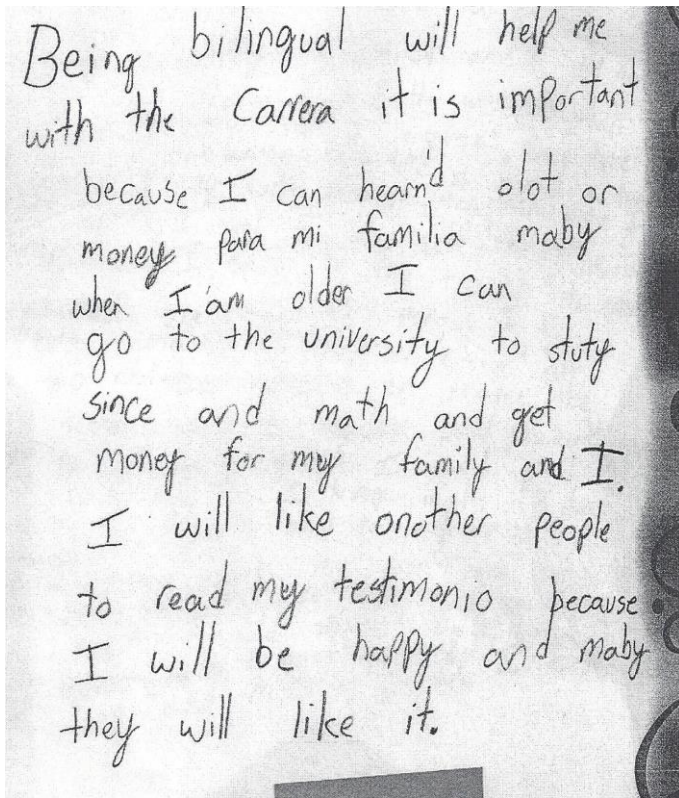 Being bilingual will help me
with the Carrera it is important
because I can hearn'd olot or
money para mi familia maby
when I am older I can
go to the university to stuty
since and math and get
money for my family and I.
I will like onother people
to read my testimonio because
I will be happy and maby
they will like it.